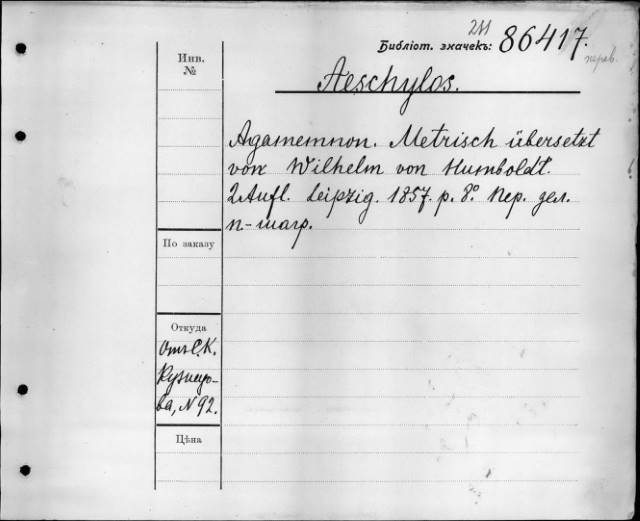 211
Библіот. значекъ: 86417.
перев.
Инв. №
Aeschylos.
Agamemnon. Metrisch übersetzt
von Wilhelm von Humboldt.
2 Aufl. Leipzig. 1857. p. 8º. Пер. дел.
п-шагр.
По заказу
Откуда
Отъ С.К.
Кузнецо-
ва, N 92.
Цѣна